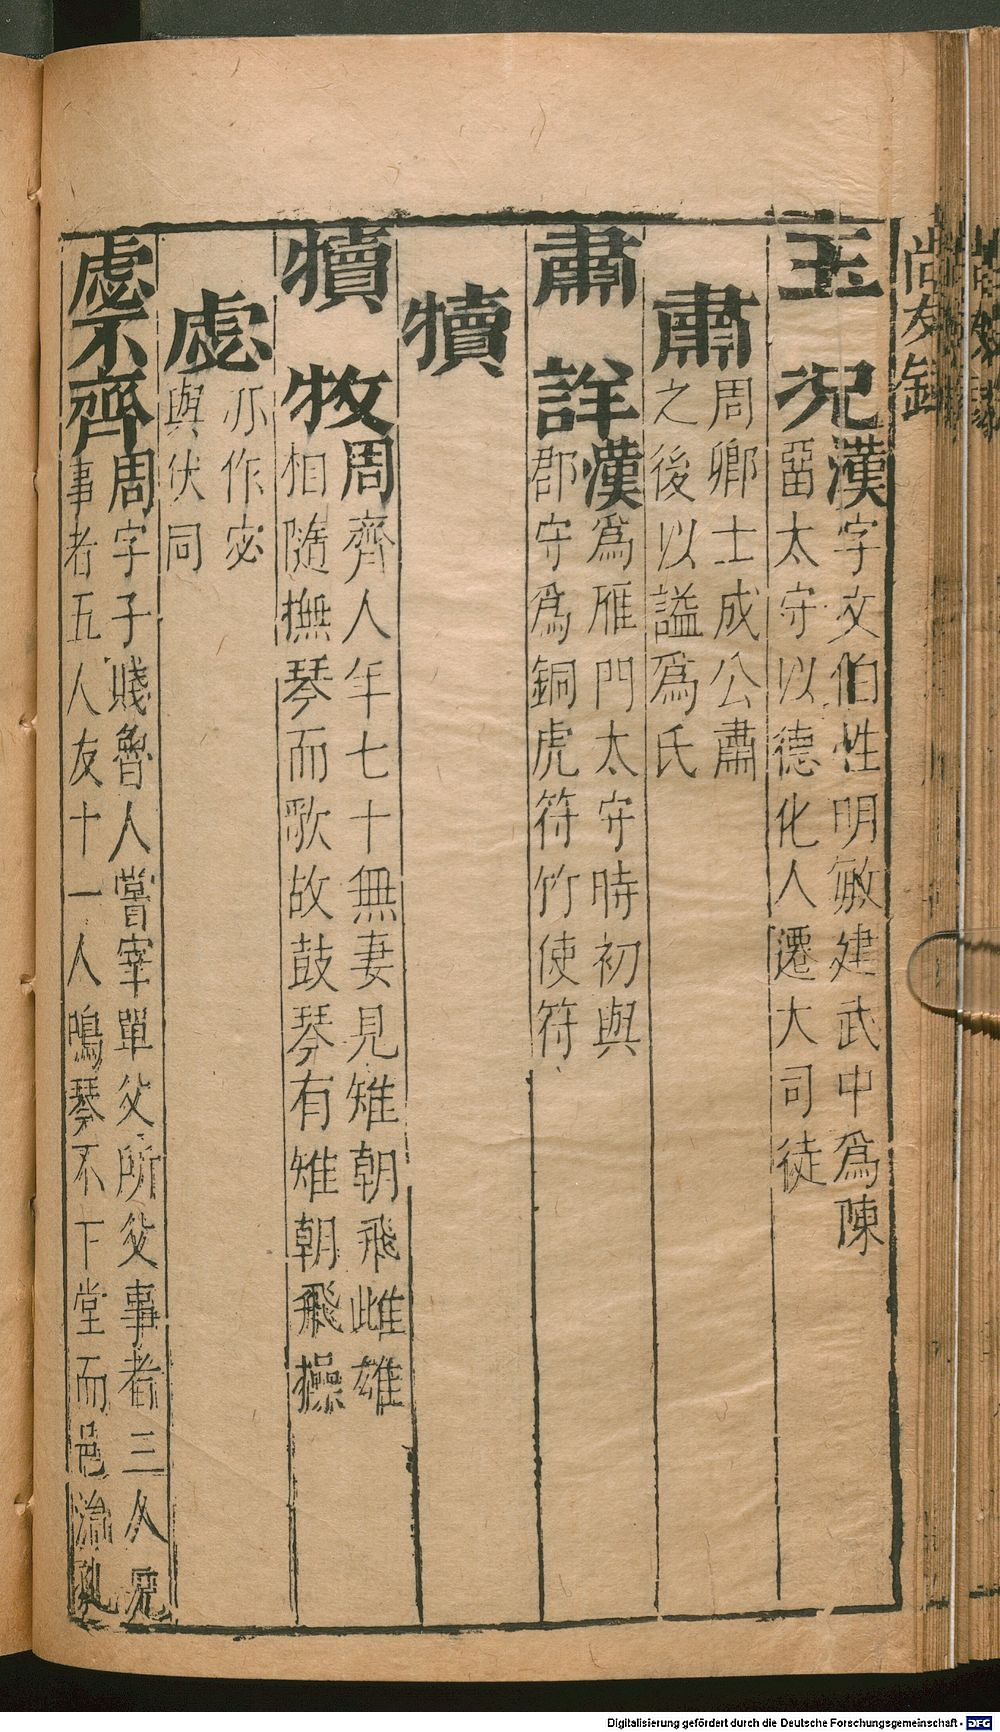 尚友錄
玉况
漢字文伯性明敏建武中爲陳
畱太守以德化人遷大司徒
肅
周卿士成公肅
之後以謚爲氏
肅詳
漢爲雁門太守時初與
郡守爲銅虎符竹使符
犢
犢牧
周齊人年七十無妻見雉朝飛雌雄
相隨撫琴而歌故鼓琴有雉朝飛操
虙
亦作宓
與伏同
虙不齊
周字子賤魯人嘗宰單父所父事者三人兄
事者五人友十一人鳴琴不下堂而邑治孔
Digitalisierung gefördert durch die Deutsche Forschungsgemeinschaft - DFG